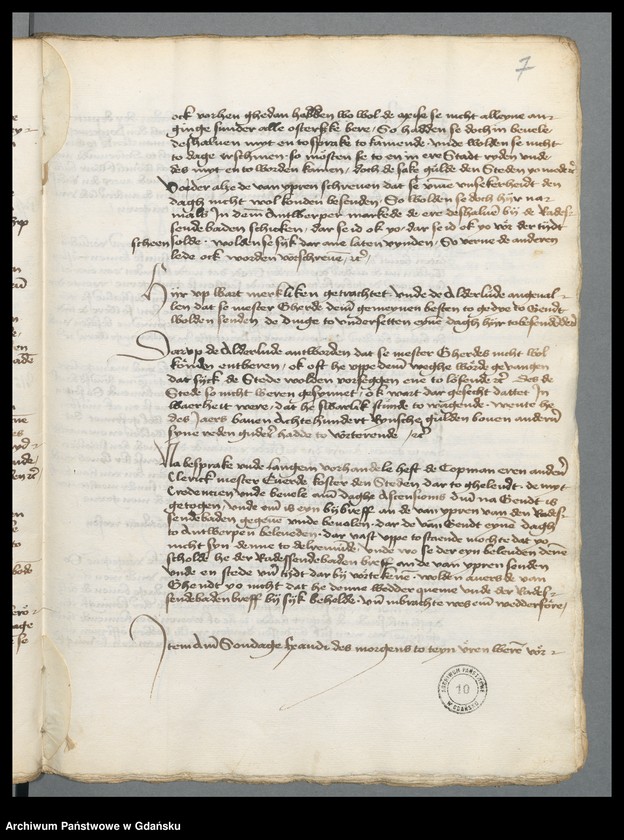 7
ock vorhen ghedan hebben wo wol de axise se nicht alleyne an⸗
ginge sunder alle ostersche bere / So hadden se doch in bevele
deshalven myt en to sprake to kamende / unde wolden se nicht
to dage irschinen so mosten se to en in ere Stadt ryden unde
des myt en to worden kamen / doch de sake gulde den Steden
Vorder alze de van ypren schreven dat se ume unsekerheydt den
dagh nicht wol konden besenden / So wolden se doch hijr na⸗
mals In dem Antwerper markede de ere deshalven bij de Rades⸗
sendebaden schicken / dar se id ok yo vor der tijdt
scheen solde / wolden se sijk dar ane laten vynden / So verne de anderen
lede ock worden vorschreven / etc /
Hijr up wart merkliken getrachtet unde de Alderlude angeval⸗
len dat se mester Gherde dem gemeynen besten to gude to Gendt
wolden senden / de dinge to undersetten eyne dagh hijr to
Dar up de Alderlude antworden dat se mester Gherdes nicht wol
konden entberen / ok oft he uppe dem weghe worde gevangen
dar sijck de Stede wolden vorseggen ene to losende etc Des de
Stede so nicht weren gesynnet / ok wart dar gesecht dattet In
waerheit were / dat he swarlik stunde to wagende / wente he
des Jaers baven Achtehundert Rynsche gulden boven anderm
syne reden hadde to vorterende / etc
Na besprake unde langem vorhandele heft de Copman eren anderen
Clerick mester Everde koster den Steden dar to ghelendt / de myt
Credencien unde bevele am daghe Ascensionis dm na Gendt is
getogen / unde em is eyn bijbreff an de van ypren van den Rades⸗
sendebaden gegeven unde bevolen / dar de van Gendt eyne dagh
to Antwerpen beleveden / dar vast uppe to staende mochte dat yo
nicht syn denne to / unde wo se der eyn beleveden dene
scholde he der Radessendebaden breff an de van ypren senden
unde en stede un tijdt dar bij vorteken / wolden averst de van
Ghendt yo nicht dat he denne wedder queme unde der Rades⸗
sendebaden breff bij sijk beholde / un inbrachte wes em wedderfore /
Item Am Sondage Exaudi des morgens to teyn uren weren vor⸗
ARCHIWUM PAŃSTWOWE
W GDAŃSKU
10
Archiwum Państwowe w Gdańsku